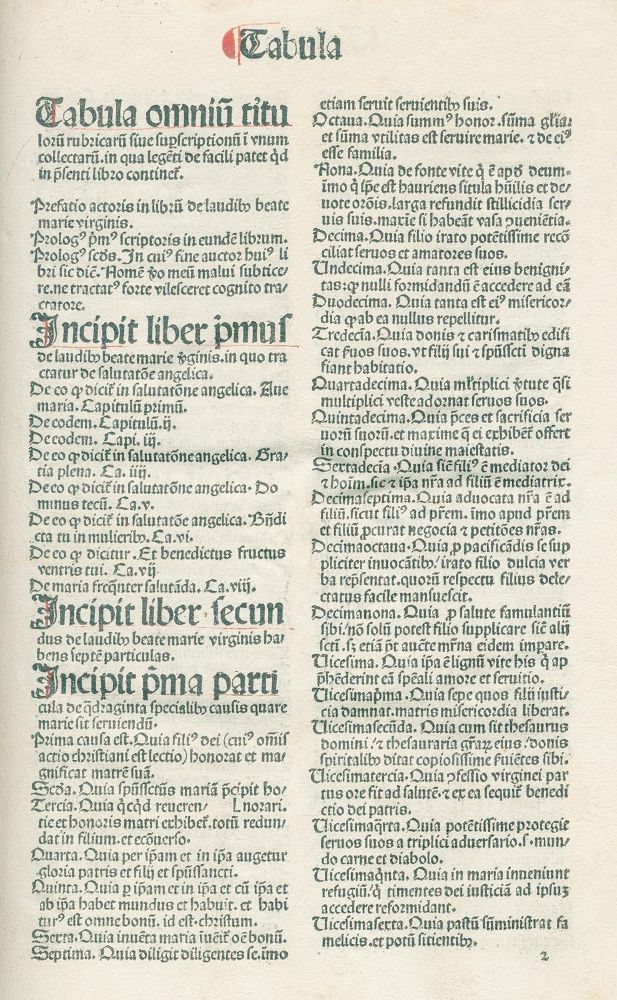 Tabula
Tabula omniū titu
lorū rubricarū siue suꝑscriptionū ī vnum
collectarū. in qua legēti de facili patet qď
in p̄senti libro continet̄.
Prefatio actoris in librū de laudibꝫ beate
marie virginis.
Prologꝰ p̄mꝰ scriptoris in eundē librum.
Prologꝰ scďs. In cuiꝰ fine auctor huiꝰ li
bri sic diē. Nomē ꝟo meū malui subtice/
re. ne tractatꝰ forte vilesceret cognito tra/
ctatore.
Incipit liber p̄mus
de laudibꝫ beate marie ꝟginis. in quo tra
ctatur de salutatōne angelica.
De eo ꝙ dicit̄ in salutatōne angelica. Aue
maria. Capitulū primū.
De eodem. Capitulū. ij.
De eodem. Capi. iij.
De eo ꝙ dicit̄ in salutatōne angelica. Gra/
tia plena. Ca. iiij.
De eo ꝙ dicit̄ in salutatōne angelica. Do
minus tecū. Ca. v.
De eo ꝙ dicit̄ in salutatōe angelica. Bn̄di
cta tu in mulieribꝫ. Ca. vi.
De eo ꝙ dicitur. Et benedictus fructus
ventris tui. Ca. vij
De maria freq̄nter salutāda. Ca. viij.
Incipit liber secun
dus de laudibꝫ beate marie virginis ha/
bens septē particulas.
Incipit p̄ma parti
cula de q̄draginta specialibꝫ causis quare
marie sit seruiendū.
Prima causa est. Quia filiꝰ dei (cuiꝰ om̄is
actio christiani est lectio) honorat et ma/
gnificat matrē suā.
Scďa. Quia spūssctūs mariā p̄cipit ho/
Tercia. Quia qͥcqͥd reueren/ Lnorari.
tie et honoris matri exhibet̄. totū redun/
dat in filium. et ecōuerso.
Quarta. Quia per ip̄am et in ip̄a augetur
gloria patris et filij et spūssancti.
Quinta. Quia ꝑ ip̄am et in ip̄a et cū ip̄a et
ab ip̄a habet mundus et habuit. et habi
turꝰ est omne bonū. id est. christum.
Sexta. Quia inuēta maria īueīt̄ oē bonū.
Septima. Quia diligit diligentes se. īmo
etiam seruit seruientibꝫ suis.
Octaua. Quia summꝰ honor. sūma gl̄ia
et sūma vtilitas est seruire marie. ⁊ de eiꝰ
esse familia.
Nona. Quia de fonte vite q̄ ē apď deum.
īmo q̄ ip̄e est hauriens situla hūilis et de/
uote orōis. larga refundit stillicidia ser/
uis suis. maxīe si habeāt vasa ꝯueniētia.
Decima. Quia filio irato potētissime recō
ciliat seruos et amatores suos.
Undecima. Quia tanta est eius benigni/
tas: ꝙ nulli formidandū ē accedere ad eā
Duodecima. Quia tanta est eiꝰ misericor/
dia ꝙ ab ea nullus repellitur.
Tredecīa. Quia donis ⁊ carismatibꝫ edifi
cat ẜuos suos. vt filij sui ⁊ spūsscti digna
fiant habitatio.
Quartadecima. Quia ml̄tiplici ꝟtute q̄si
multiplici veste adornat seruos suos.
Quintadecima. Quia p̄ces et sacrificia ser
uorū suorū. et maxime q̄ ei exhibēt̄ offert
in conspectu diuine maiestatis.
Sextadecīa. Quia sic̄ filiꝰ ē mediator dei
⁊ hoīm. sic ⁊ ip̄a nr̄a ad filiū ē mediatrix.
Decimaseptima. Quia aduocata nr̄a ē ad
filiū. sicut filiꝰ ad pr̄em. īmo apud pr̄em
et filiū ꝓcurat negocia ⁊ petitōes nr̄as.
Decimaoctaua. Quia ꝓ pacificādis se sup
pliciter inuocātibꝫ/ irato filio dulcia ver
ba rep̄sentat. quorū respectu filius dele/
ctatus facile mansuescit.
Decimanona. Quia ꝓ salute famulantiū
sibi/ nō solū potest filio supplicare sic̄ alij
scti. sꝫ etiā pōt aucte mr̄na eidem impare.
Uicesima. Quia ip̄a ē lignū vite his q̄ ap
p̄hēderint eā sp̄eāli amore et seruitio.
Uicesimap̄ma. Quia sepe quos filij iusti/
cia damnat. matris misericordia liberat.
Uicesimasecūda. Quia cum sit thesaurus
domini/ ⁊ thesauraria gr̄aꝝ eius/ donis
spiritalibꝫ ditat copiosissime ẜuiētes sibi.
Uicesimatercia. Quia ꝯfessio virginei par
tus ore fit ad salutē. ⁊ ex ea sequit̄ benedi
ctio dei patris.
Uicesimaq̄rta. Quia potētissime protegit
seruos suos a triplici aduersario. s. mun/
do carne et diabolo.
Uicesimaqͥnta. Quia in maria inueniunt
refugiū/ qͥ timentes dei iusticiā ad ipsuꝫ
accedere reformidant.
Uicesimasexta. Quia pastū sūministrat fa
melicis. et potū sitientibꝫ.
2